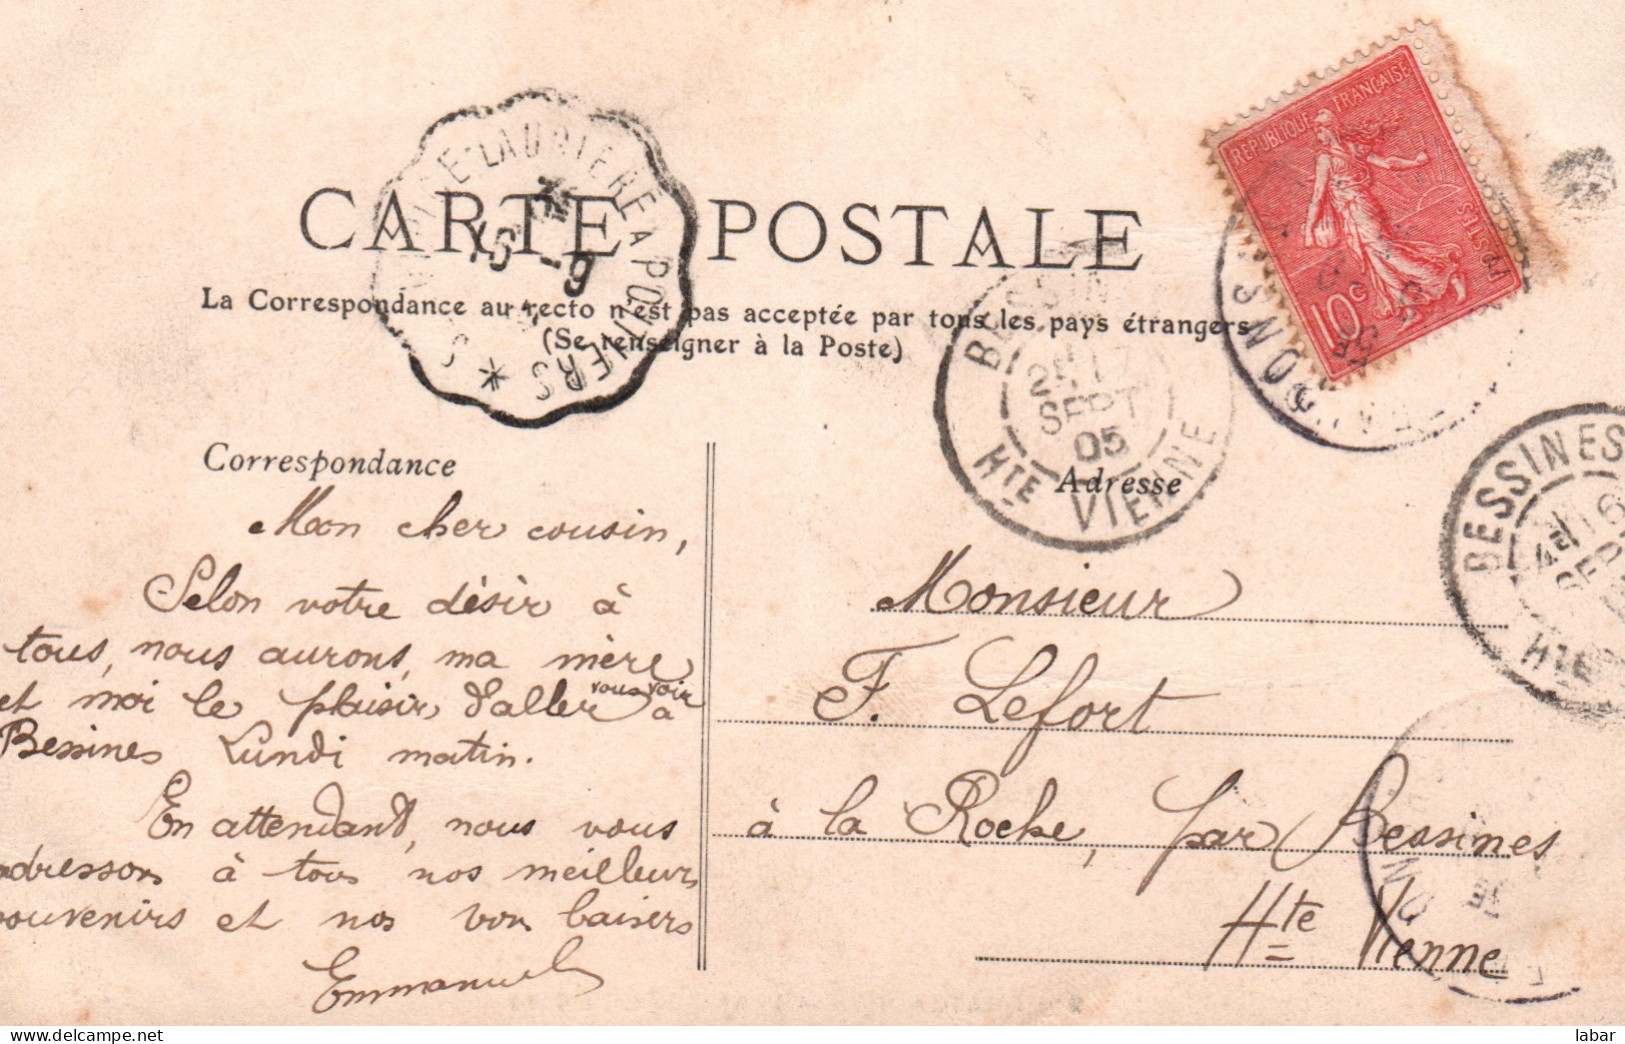 CARTE POSTALE
La Correspondance au recto n'est pas acceptée par tous les pays étrangers
(Se renseigner à la Poste)
REPUBLIQUE FRANÇAISE
POSTES
10c
LAURIERE A POITIERS
16 -9
BESSINES
SEPT
05
HTE VIENNE
BESSINES
16
SEPT
HTE
Correspondance
Mon cher cousin,
Selon votre désir à
tous, nous aurons, ma mère
et moi le plaisir d'aller vous voir à
Bessines Lundi matin.
En attendant, nous vous
adressons à tous nos meilleurs
souvenirs et nos bon baisers
Emmanuel
Adresse
Monsieur
F. Lefort
à la Roche, par Bessines
Hte Vienne
labar